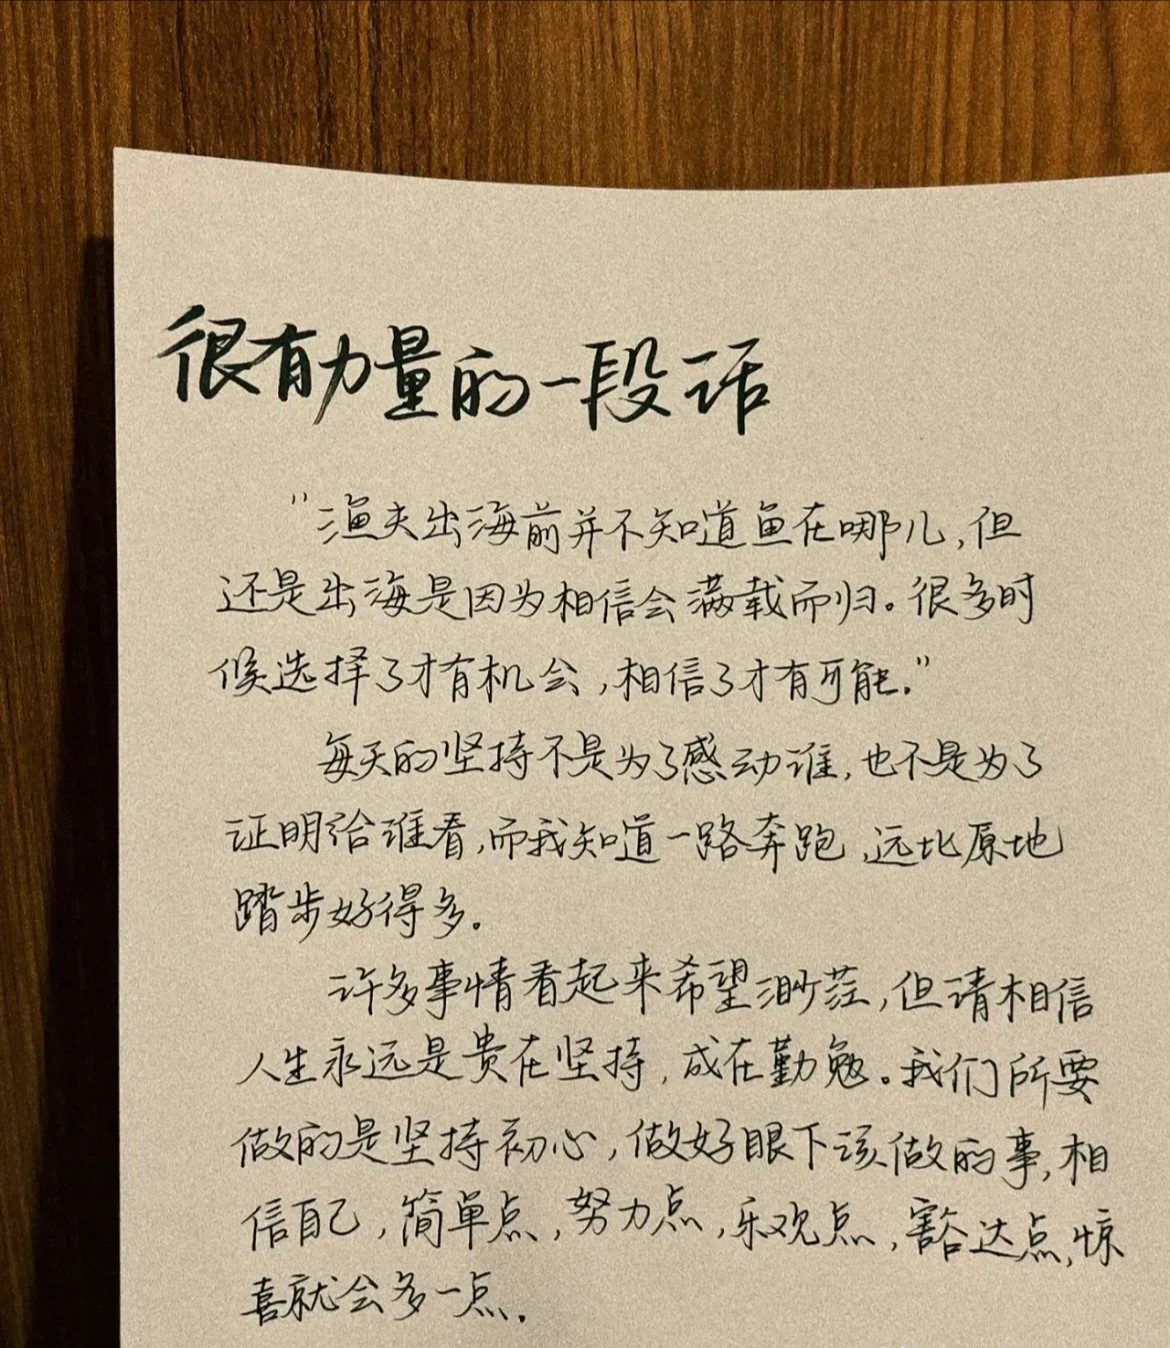 很有力量的一段话
"渔夫出海前并不知道鱼在哪儿,但
还是出海是因为相信会满载而归。很多时
候选择了才有机会,相信了才有可能."
每天的坚持不是为了感动谁,也不是为了
证明给谁看,而我知道一路奔跑,远比原地
踏步好得多.
许多事情看起来希望渺茫,但请相信
人生永远是贵在坚持,成在勤勉。我们所要
做的是坚持初心,做好眼下该做的事,相
信自己,简单点,努力点,乐观点,豁达点,惊
喜就会多一点.